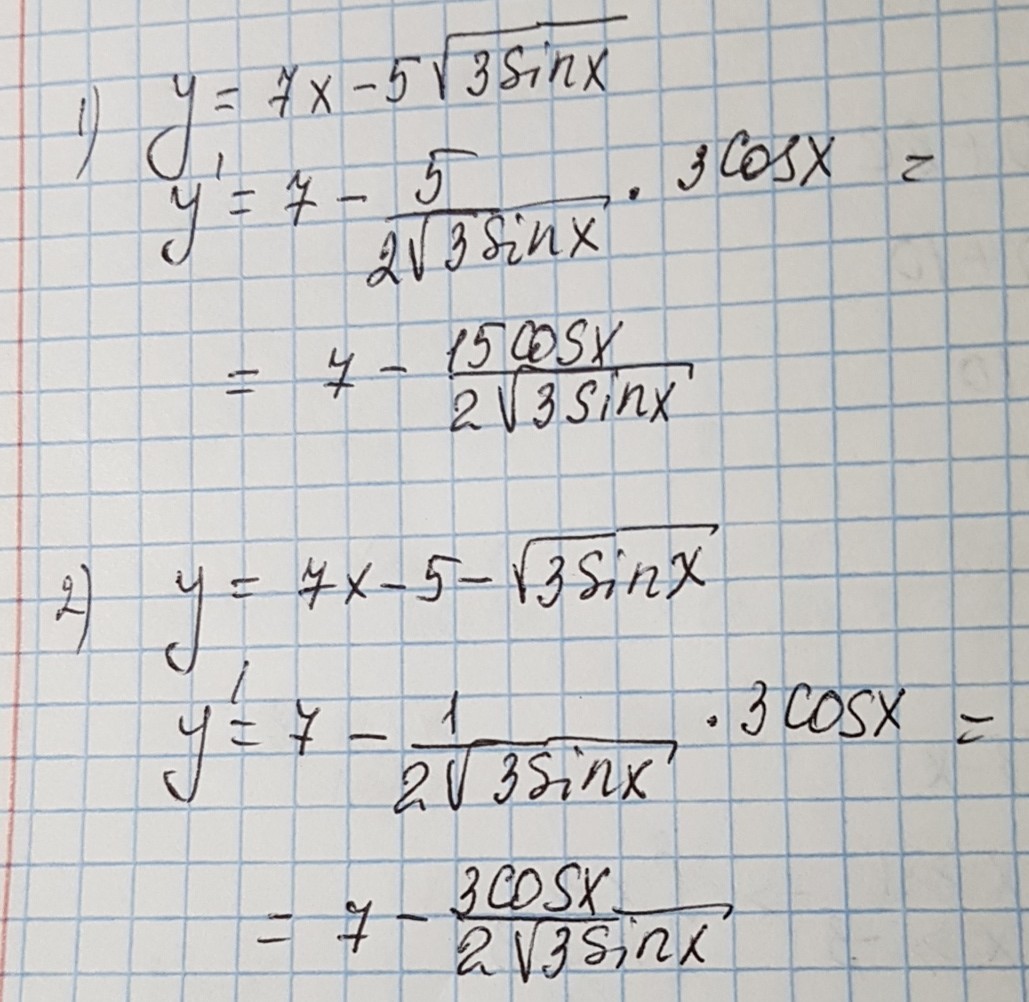 1) y = 7x - 5√(3sinx)
y' = 7 - 5/(2√(3sinx)) · 3cosx =
= 7 - 15cosx/(2√(3sinx))
2) y = 7x - 5 - √(3sinx)
y' = 7 - 1/(2√(3sinx)) · 3cosx =
= 7 - 3cosx/(2√(3sinx))